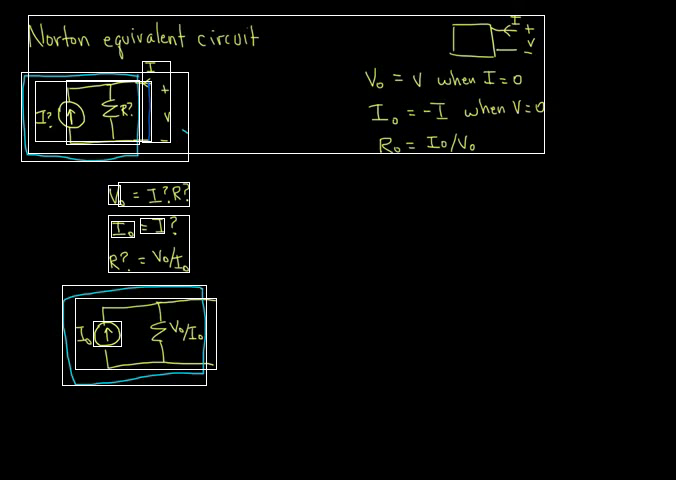 Norton equivalent circuit
I
+
V
-
V₀ = V when I=0
I₀ = -I when V=0
R₀ = I₀/V₀
I
+
I? R? V
-
V₀ = I?R?
I₀ = I?
R? = V₀/I₀
I₀ V₀/I₀